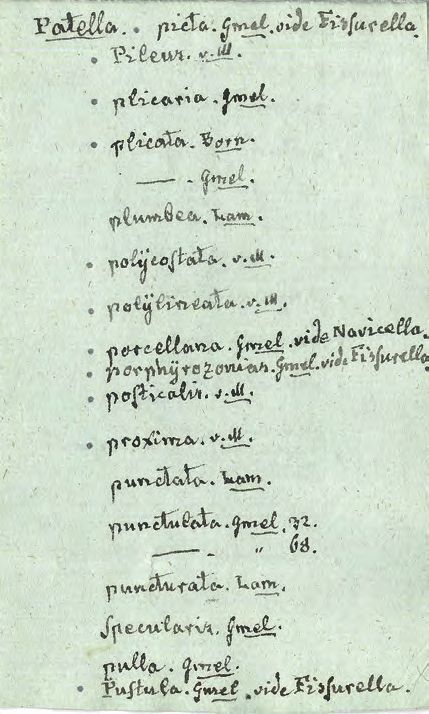 Patella. . picta. Gmel. vide Fissurella.
• Pileus. v. M.
• plicaria. Gmel.
• plicata. Born.
— . Gmel.
plumbea. Lam.
• polÿcostata. v. M.
• polÿlineata. v. M.
• porcellana. Gmel. vide Navicella.
• porphÿrozonias. Gmel. vide Fissurella
• posticalis. v. M.
• proxima. v. M.
punctata. Lam.
punctulata. Gmel. 32.
— . " 68.
puncturata. Lam.
Specularis. Gmel.
pulla. Gmel.
• Pustula. Gmel. vide Fissurella.